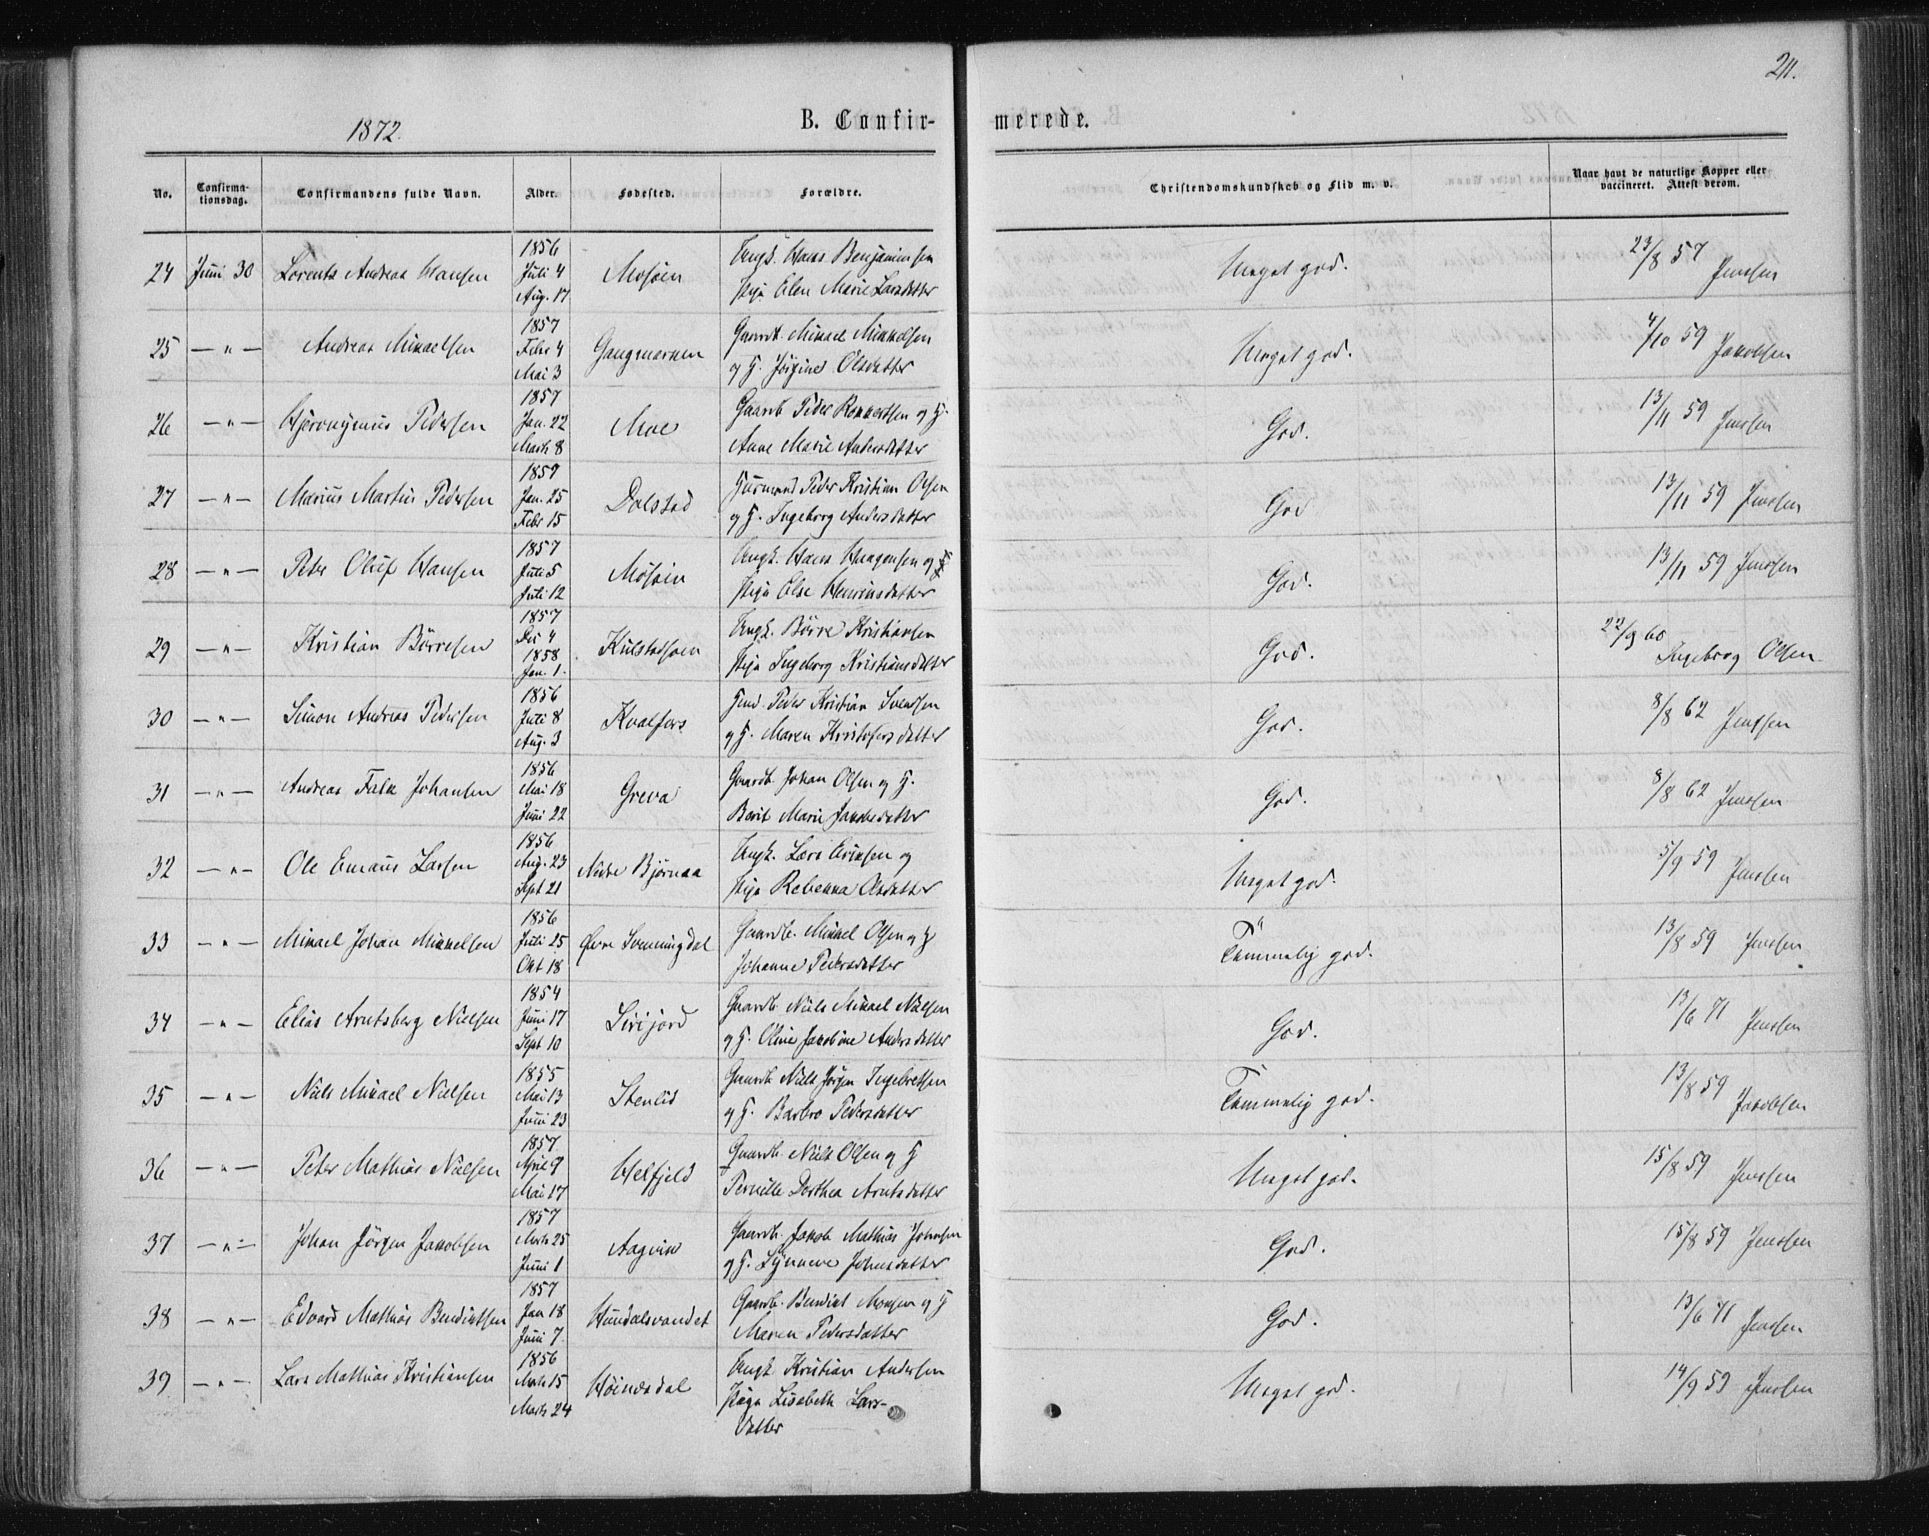 211.
1872.
B. Confir- merede.
No. Confirma-tionsdag. Confirmandens fulde Navn. Alder. Fødested. Forældre. Christendomskundskab og Flid m. v. Naar havt de naturlige Kopper eller vaccineret. Attest derom.
24 Juni 30 Lorents Andreas Hansen 1856 Juli 4 Aug. 17 Mosøen Ungk. Hans Benjaminsen Pige Elen Marie Larsdatter Meget god. 23/8 57 Jenssen
25 — " — Andreas Mikaelsen 1857 Febr 4 Mai 3 Gaardb. Mikael Mikkelsen og H. Jørgine Olsdatter Meget god. 4/10 59 Jakobsen
26 — " — Hieronymus Pedersen 1857 Jan. 22 Marts 8 Moe Gaardb. Peder og H. Anne Marie Andersdatter God. 13/11 59 Jenssen
27 — " — Marius Martin Pedersen 1857 Jan. 25 Febr 15 Dolstad Huusmand Peder Kristian Olsen og H. Ingeborg Andersdatter God 13/11 59 Jenssen
28 — " — Peter Oluf Hansen 1857 Juli 5 Juli 12 Mosøen Ungk. Hans Haagensen og Pige Else Henriksdatter God. 13/11 59 Jenssen
29 — " — Kristian Børresen 1857 Dec 4 1858 Jan. 1. Kulstadsøen Ungk. Børre Kristiansen Pige Ingeborg Kristiansdatter God. 22/9 60 Ingeborg Olsen
30 — " — Simon Andreas Pedersen 1856 Juli 8 Aug. 3 Kvalfors Hmd. Peder Kristian Svendsen og H. Maren Kristofersdatter God. 8/8 62 Jenssen
31 — " — Andreas Falk Johansen 1856 Mai 18 Juni 22 Greva Gaardb. Johan Olsen og H. Berit Marie Jakobsdatter God. 8/8 62 Jenssen
32 — " — Ole Emaus Larsen 1856 Aug. 23 Sept 21 Nedre Bjørnaa Ungk. Lars Eriksen og Pige Rebekka Olsdatter Meget god. 5/9 59 Jenssen
33 — " — Mikael Johan Mikkelsen 1856 Juli 25 Okt 18 Øvre Svenningdal Gaardb. Mikkel Olsen og H Johanne Pedersdatter Temmelig god. 13/8 59 Jenssen
34 — " — Elias Arntsberg Nielsen 1854 Juni 17 Sept 10 Sirijord Gaardb Niels Mikael Nielsen og H. Oline Jakobine Andersdatter God. 13/6 71 Jenssen
35 — " — Niels Mikael Nielsen 1855 Mai 13 Juni 23 Stenlid Gaardb Niels Jørgen Ingebretsen og H. Barbro Pedersdatter Temmelig god. 13/8 59 Jakobsen
36 — " — Peter Mathias Nielsen 1857 April 9 Mai 17 Helfjeld Gaardb. Niels Olsen og H Pernille Dorthea Arntsdatter Meget god. 15/8 59 Jenssen
37 — " — Johan Jørgen Jakobsen 1857 Marts 25 Juni 1 Aagvik Gaardb. Jakob Mathias Johnsen og H. Synneve Johnsdatter God. 15/8 59 Jenssen
38 — " — Edvard Mathias Bendiktsen 1857 Jan 18 Juni 7. Hundalsvandet Gaardb. Bendikt Monsen og H Maren Pedersdatter God. 13/6 71 Jenssen
39 — " — Lars Mathias Kristiansen 1856 Marts 15 Marts 24 Ungk Kristian Andersen Pige Lisabeth Lars-datter Meget god. 14/9 59 Jenssen